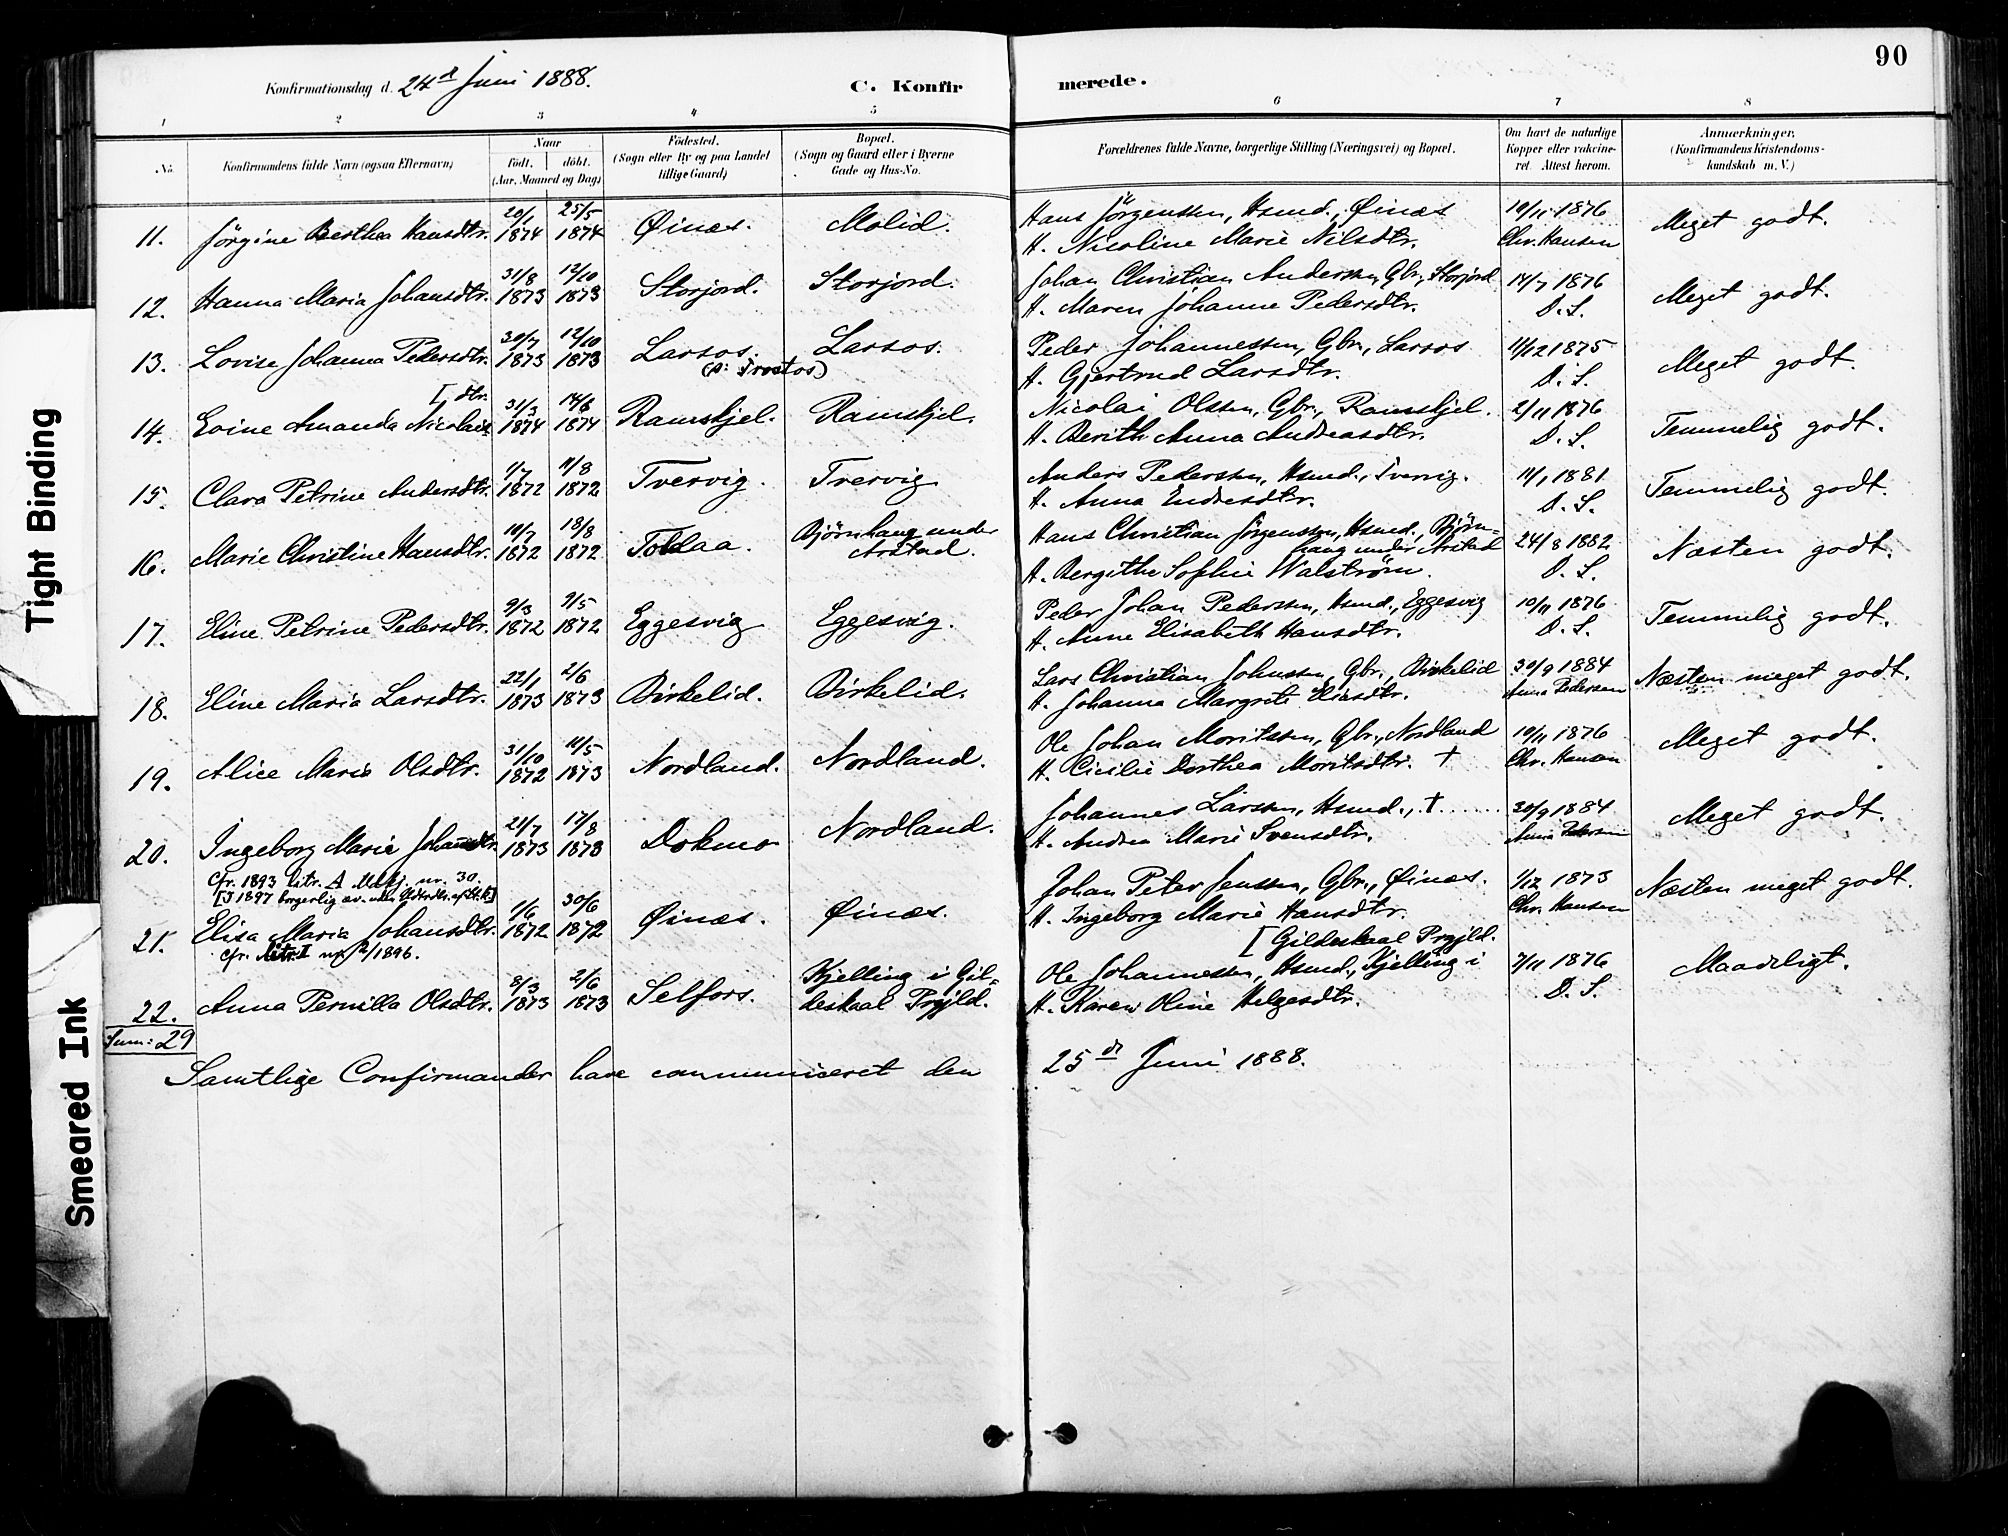 90
Konfirmationsdag d. 24d Juni 1888.
C. Konfir
merede.
1 2 3 4 5 6 7 8
No.
Konfirmandens fulde Navn (ogsaa Efternavn)
Naar
født. døbt.
(Aar, Maaned og Dag)
Fødested.
(Sogn eller By og paa Landet
tillige Gaard)
Bopæl.
(Sogn og Gaard eller i Byerne
Gade og Hus-No.
Forældrenes fulde Navne, borgerlige Stilling (Næringsvei) og Bopæl.
Om havt de naturlige
Kopper eller vakcine-
ret. Attest herom.
Anmærkninger.
(Konfirmandens Kristendoms-
kundskab m. V.)
20/1 25/5 Hans Jörgenssen, Hsmd., Øinæs 10/11 1876
11. Jörgine Berthea Hansdtr. 1874 1874 Øinæs. Molid. H. Nicoline Marie Nilsdtr. Chr. Hansen Meget godt.
31/8 12/10 Johan Christian Anderssen, Gbr., Storjord 14/7 1876
12. Hanna Maria Johansdtr. 1873 1873 Storjord. Storjord. H. Maren Johanne Pedersdtr. D. S. Meget godt.
20/7 12/10 Peder Johannessen, Gbr., Larsos 11/12 1875
13. Lovise Johanna Pedersdtr. 1873 1873 Larsos. Larsos. H. Gjertrud Larsdtr. D. S. Meget godt.
(Trostos)
[dtr. 31/3 14/6 Nicolai Olssen, Gbr., Ramskjel. 2/11 1876
14. Evine Amanda Nicolais 1874 1874 Ramskjel. Ramskjel. H. Berith Anna Andreasdtr. D. S. Temmelig godt.
1/7 11/8 Anders Pederssen, Hsmd., Tvervig. 11/1 1881
15. Clara Petrine Andersdtr. 1872 1872 Tvervig. Tvervig H. Anna Endresdtr. D. S. Temmelig godt.
10/7 18/8 Bjørnhaug under Hans Christian Jörgenssen, Hsmd., Bjørn-
haug under Arstad 24/8 1882
16. Marie Christine Hansdtr. 1872 1872 Tollaa. Arstad. H. Bergithe Sophie Walstrøm. D. S. Næsten godt.
9/3 9/5 Peder Johan Pederssen, Hsmd., Eggesvig 10/11 1876
17. Eline Petrine Pedersdtr. 1872 1872 Eggesvig Eggesvig. H. Anne Elisabeth Hansdtr. D. S. Temmelig godt.
22/1 2/6 Lars Christian Johnssen, Gbr., Birkelid 30/9 1884
18. Eline Maria Larsdtr. 1873 1873 Birkelid. Birkelid. H. Johanna Margrete Eliasdtr. Anna Pedersen Næsten meget godt.
31/10 11/5 Ole Johan Moritssen, Gbr., Nordland 10/11 1876
19. Alice Marie Olsdtr. 1872 1873 Nordland. Nordland. H. Cicilie Dorthea Moritsdtr. † Chr. Hansen Meget godt.
21/7 17/8 Johannes Larssen, Hsmd., † 30/9 1884
20. Ingeborg Marie Johansdtr. 1873 1873 Dokmo Nordland. H. Andrea Marie Svensdtr. Anna Pedersen Meget godt.
Cfr. 1893 Litr. A nr. 30.
[I 1897 borgerlig
1/6 30/6 Johan Peter Jenssen, Gbr., Øinæs. 1/12 1873
21. Elisa Maria Johansdtr. 1872 1872 Øinæs. Øinæs. H. Ingeborg Marie Hansdtr. Chr. Hansen Næsten meget godt.
cfr. Litr. I nr. 2/1896. [Gildeskaal Prgjld.
8/3 2/6 Kjelling i Gil- Ole Johannessen, Hsmd., Kjelling i 7/11 1876
22. Anna Pernilla Olsdtr. 1873 1873 Selfors. deskaal Prgjld. H. Karen Oline Helgesdtr. D. S. Maadeligt.
Sum: 29
Samtlige Confirmander have communiceret den 25de Juni 1888.
Tight Binding
Smeared Ink